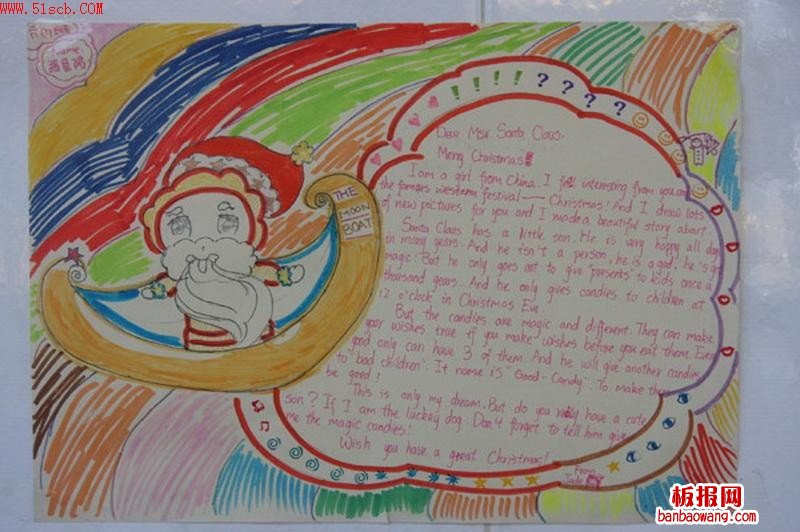 www.51scb.com
Name
THE
MOON
BOAT
!!!!????
Dear Msr Santa Claus:
Merry Christmas!
I am a girl from China. I fell interesting from you and
the famous western festival——Christmas! And I draw lots
of new pictures for you and I made a beautiful story about
Santa Claus has a little son. He is very happy all day
in many years. And he isn't a person, he is a god, he's
magic! But he only goes out to give "presents" to kids once a
thousand years. And he only gives candies to children at
12 o'clock in Christmas Eve.
But the candies are magic and different. They can make
your wishes true if you make wishes before you eat them. Every
good only can have 3 of them. And he will give another candies
to "bad children". It name is "Good-Candy" To make them
be good!
This is only my dream. But do you really have a cute
son? If I am the luckey dog. Don't forget to tell him give
me the magic candies!
Wish you have a great Christmas!
From
Jade
板报网
banbaowang.com